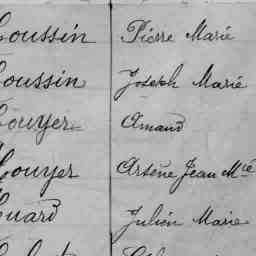 oussin Pierre Marie
oussin Joseph Marie
ouyer Amand
ouyer Arsène Jean Mie
uard Julien Marie